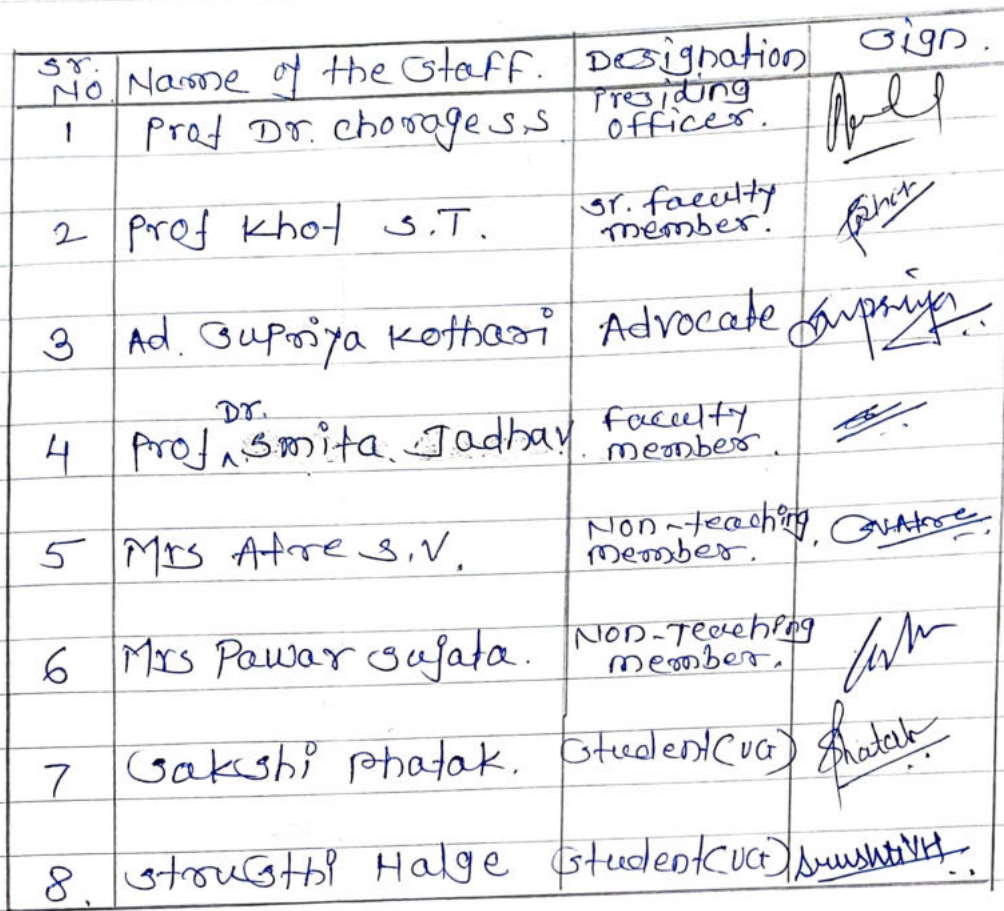 Sr. No. Name of the Staff. Designation Sign.
1 Prof Dr. chorage S.S. Presiding officer.
2 Prof Khot S.T. Sr. faculty member.
3 Ad. Supriya Kothari Advocate Supriya
4 Prof Dr. Smita Jadhav. faculty member.
5 Mrs Atre S.V. Non-teaching member. SVAtre
6 Mrs Pawar Sujata. Non-Teaching member.
7 Sakshi Phatak. Student(UG) Phatak
8. Strusthi Halge Student(UG) SrushtiVH